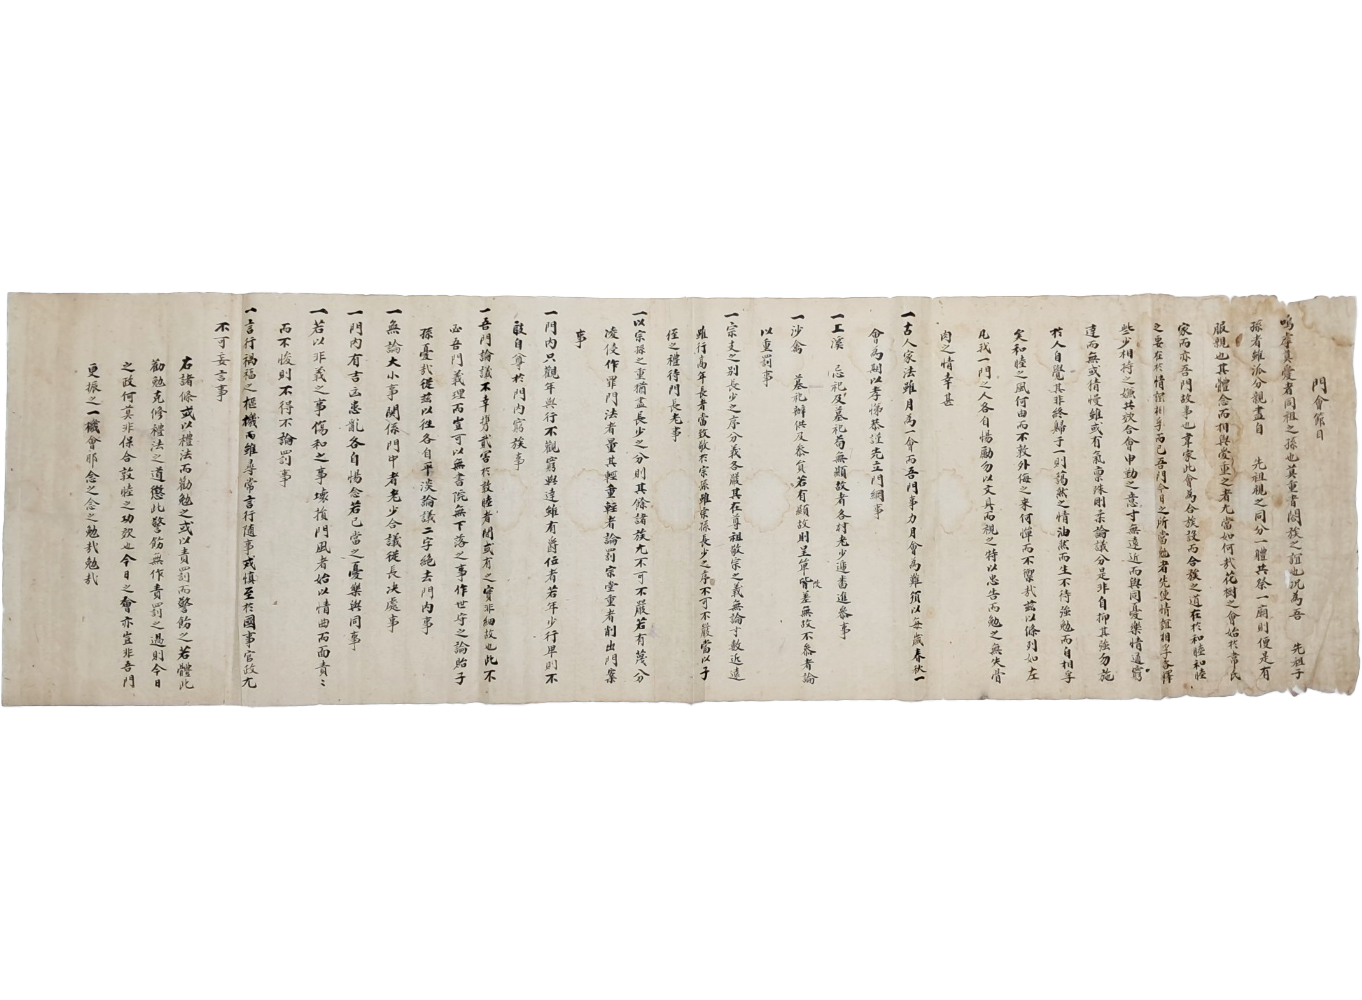 門會節目
嗚呼眞愛者同祖之孫也莫重者閤族之誼也况爲吾 先祖子
孫者雖派分親盡自 先祖視之同分一體共祭一廟則便是有
服親也其體念而相與愛重之者尤當如何哉花樹之會始於韋氏
家而亦吾門故事也韋家此會爲合族設而合族之道在於和睦和睦
之要在於情誼相孚而已吾門今日之所當勉者先使情誼相孚各釋
些少相持之嫌共效合會申勤之意寸無遠近而與同憂樂情通窮
達而無或情慢雖或有氣稟殊剛柔論議分是非自抑其強勿施
於人自覺其非終歸于一則藹然之情油然而生不待強勉而自相孚
矣和睦之風何由而不敦外侮之來何憚而不禦哉玆以條列如左
凡我一門之人各自惕勵勿以文具而視之特以忠告而勉之無失骨
肉之情幸甚
一古人家法雖月爲一會而吾門事力月會爲難須以每歲春秋一
會爲期以孝悌恭謹先立門綱事
一工溪 忌祀及墓祀苟無顯故者各村老少遞番進參事
一沙禽 墓祀辦供及參員若有顯故則呈單背差無故不參者論
以重罰事
一宗支之別長少之序分義各嚴其在尊祖敬宗之義無論寸數近遠
雖行高年長者當致敬於宗孫雖宗孫長少之序不可不嚴當以子
侄之禮待門長老事
一以宗孫之重猶盡長少之分則其餘諸族尤不可不嚴若有蔑分
凌侵作罪門法者量其輕重輕者論罰宗堂重者削出門案
事
一門內只觀年與行不觀窮與達雖有爵位者若年少行卑則不
敢自尊於門內窮族事
一吾門論議不幸携貳害於敦睦者間或有之實非細故也此不
必吾門義理而豈可以無書院無下落之事作世守之論貽子
孫憂哉從玆以往各自平淡論議二字絶去門內事
一無論大小事關係門中者老少合議從長決處事
一門內有吉凶患亂各自惕念若己當之憂樂與同事
一若以非義之事傷和之事壞損門風者始以情曲而面責之
而不悛則不得不論罰事
一言行禍福之樞機而雖尋常言行隨事戒愼至於國事官政尤
不可妄言事
右諸條或以禮法而勸勉之或以責罰而警飭之若體此
勸勉克修禮法之道懲此警飭無作責罰之過則今日
之政何莫非保合敦睦之功效也今日之會亦豈非吾門
更振之一機會耶念之念之勉哉勉哉